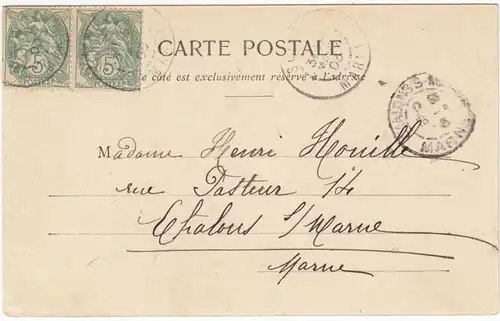 5 5
CARTE POSTALE
Ce côté est exclusivement réservé à l'adresse
MARNE
Madame Henri Houille
rue Pasteur 14
Chalons s/Marne
Marne